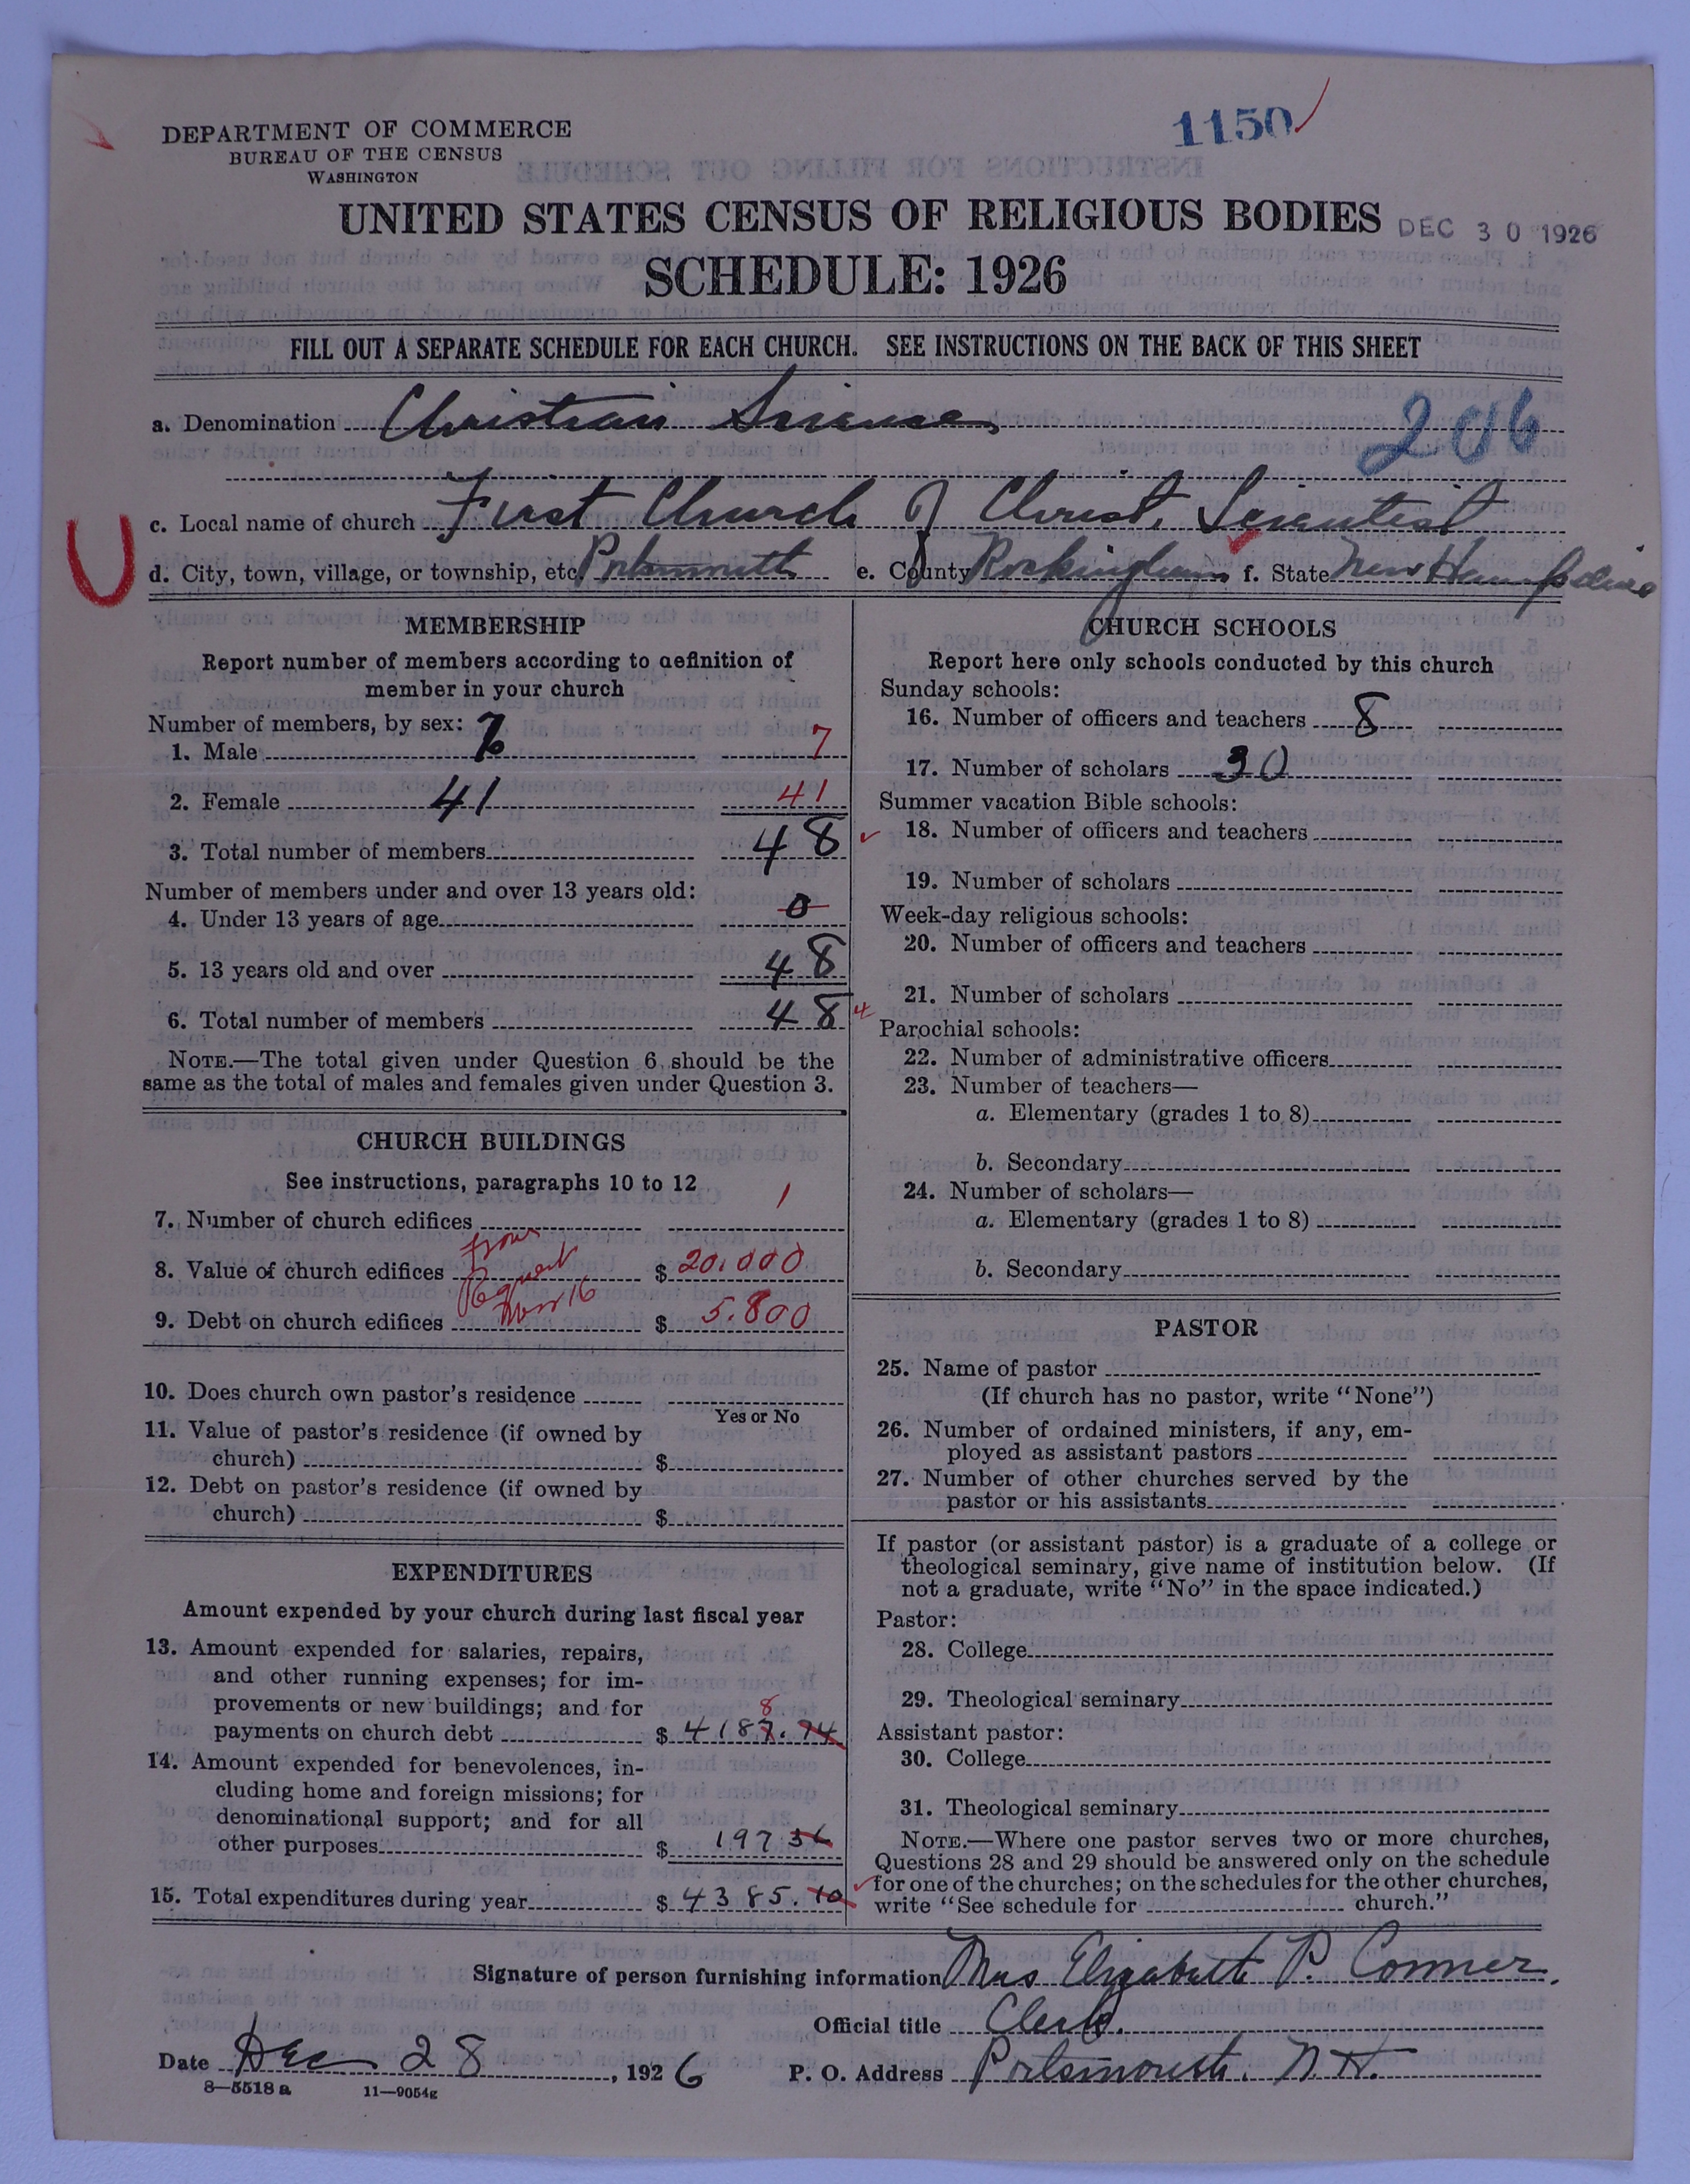 1150
DEPARTMENT OF COMMERCE
BUREAU OF THE CENSUS
WASHINGTON
UNITED STATES CENSUS OF RELIGIOUS BODIES
DEC 30 1926
SCHEDULE: 1926
FILL OUT A SEPARATE SCHEDULE FOR EACH CHURCH. SEE INSTRUCTIONS ON THE BACK OF THIS SHEET
a. Denomination Christian Science
206
c. Local name of church First Church of Christ, Scientist
d. City, town, village, or township, etc. Portsmouth e. County Rockingham f. State New Hampshire
MEMBERSHIP
Report number of members according to definition of
member in your church
Number of members, by sex:
1. Male 7 7
2. Female 41 41
3. Total number of members 48
Number of members under and over 13 years old:
4. Under 13 years of age 0
5. 13 years old and over 48
6. Total number of members 48
NOTE.—The total given under Question 6 should be the
same as the total of males and females given under Question 3.
CHURCH BUILDINGS
See instructions, paragraphs 10 to 12
7. Number of church edifices 1
8. Value of church edifices $ 20,000
from
Nov 16
9. Debt on church edifices $ 5,800
10. Does church own pastor's residence
Yes or No
11. Value of pastor's residence (if owned by
church) $
12. Debt on pastor's residence (if owned by
church) $
EXPENDITURES
Amount expended by your church during last fiscal year
13. Amount expended for salaries, repairs,
and other running expenses; for im-
provements or new buildings; and for
8
payments on church debt $ 4187.74
14. Amount expended for benevolences, in-
cluding home and foreign missions; for
denominational support; and for all
other purposes $ 197 36
15. Total expenditures during year $ 4385.10
CHURCH SCHOOLS
Report here only schools conducted by this church
Sunday schools:
16. Number of officers and teachers 8
17. Number of scholars 30
Summer vacation Bible schools:
18. Number of officers and teachers
19. Number of scholars
Week-day religious schools:
20. Number of officers and teachers
21. Number of scholars
Parochial schools:
22. Number of administrative officers
23. Number of teachers—
a. Elementary (grades 1 to 8)
b. Secondary
24. Number of scholars—
a. Elementary (grades 1 to 8)
b. Secondary
PASTOR
25. Name of pastor
(If church has no pastor, write "None")
26. Number of ordained ministers, if any, em-
ployed as assistant pastors
27. Number of other churches served by the
pastor or his assistants
If pastor (or assistant pastor) is a graduate of a college or
theological seminary, give name of institution below. (If
not a graduate, write "No" in the space indicated.)
Pastor:
28. College
29. Theological seminary
Assistant pastor:
30. College
31. Theological seminary
NOTE.—Where one pastor serves two or more churches,
Questions 28 and 29 should be answered only on the schedule
for one of the churches; on the schedules for the other churches,
write "See schedule for church."
Signature of person furnishing information Mrs Elizabeth P. Conner.
Official title Clerk.
Date Dec 28, 1926 P. O. Address Portsmouth, N. H.
8—5518a 11—9054g